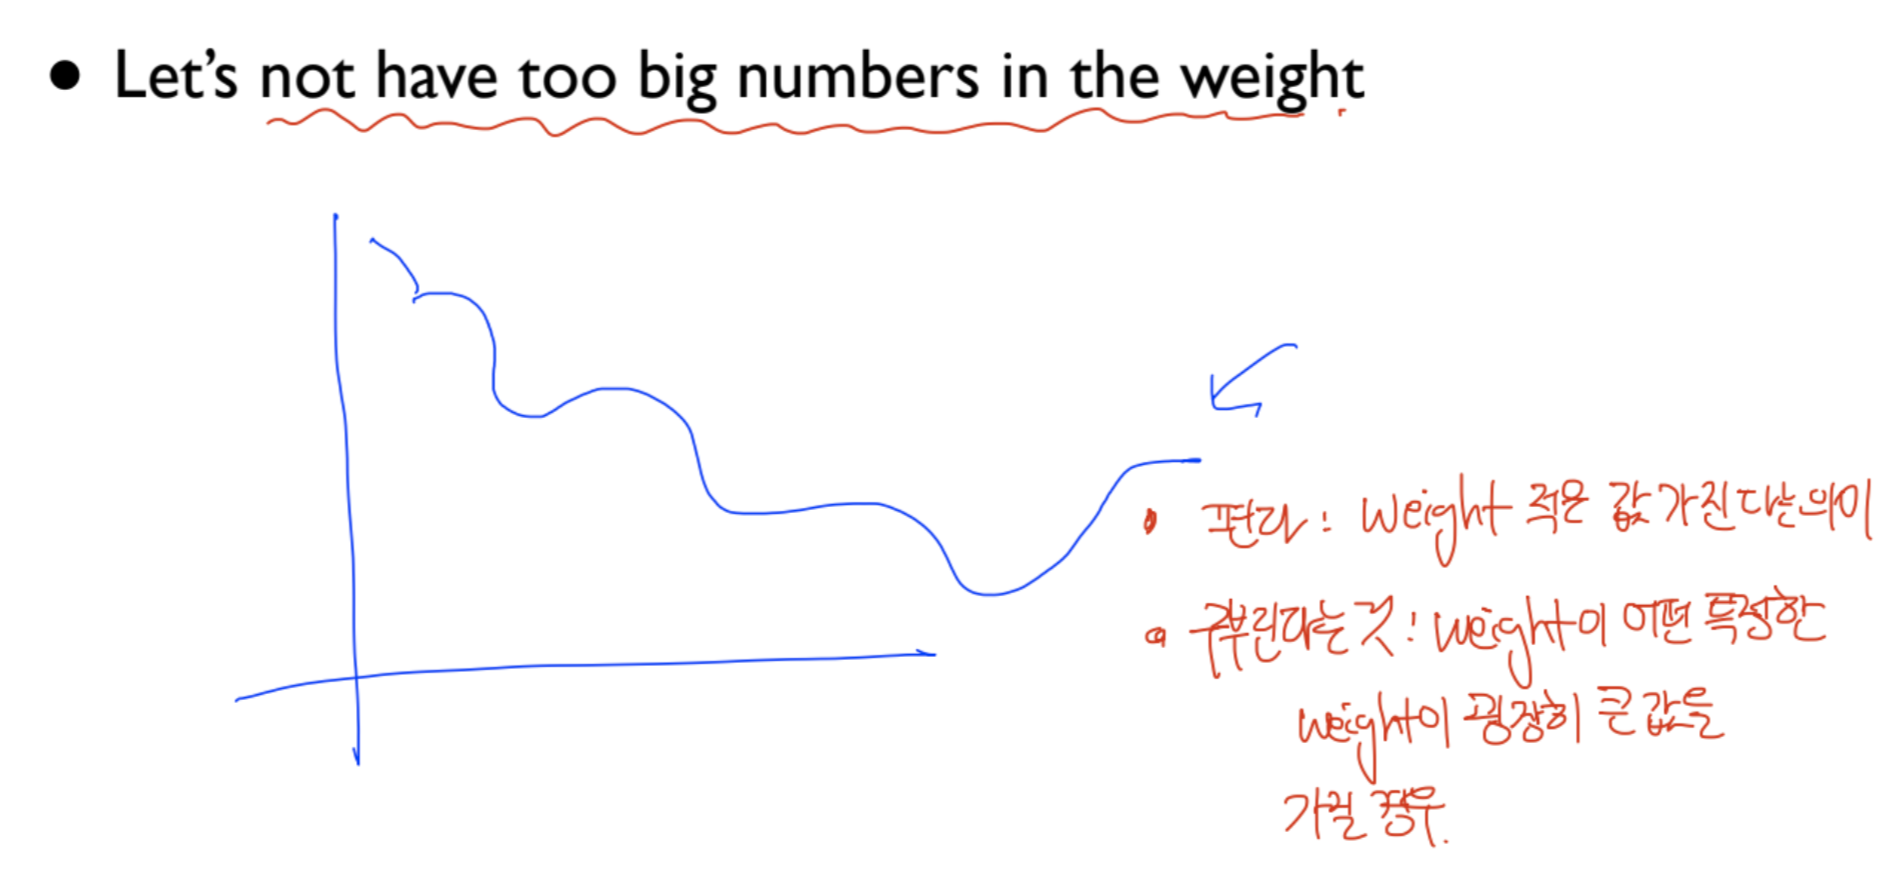 • Let's not have too big numbers in the weight
• 편다 : weight 적은 값 가진다는 의미
• 구부린다는 것 : weight이 어떤 특정한
weight이 굉장히 큰 값을
가질 경우.